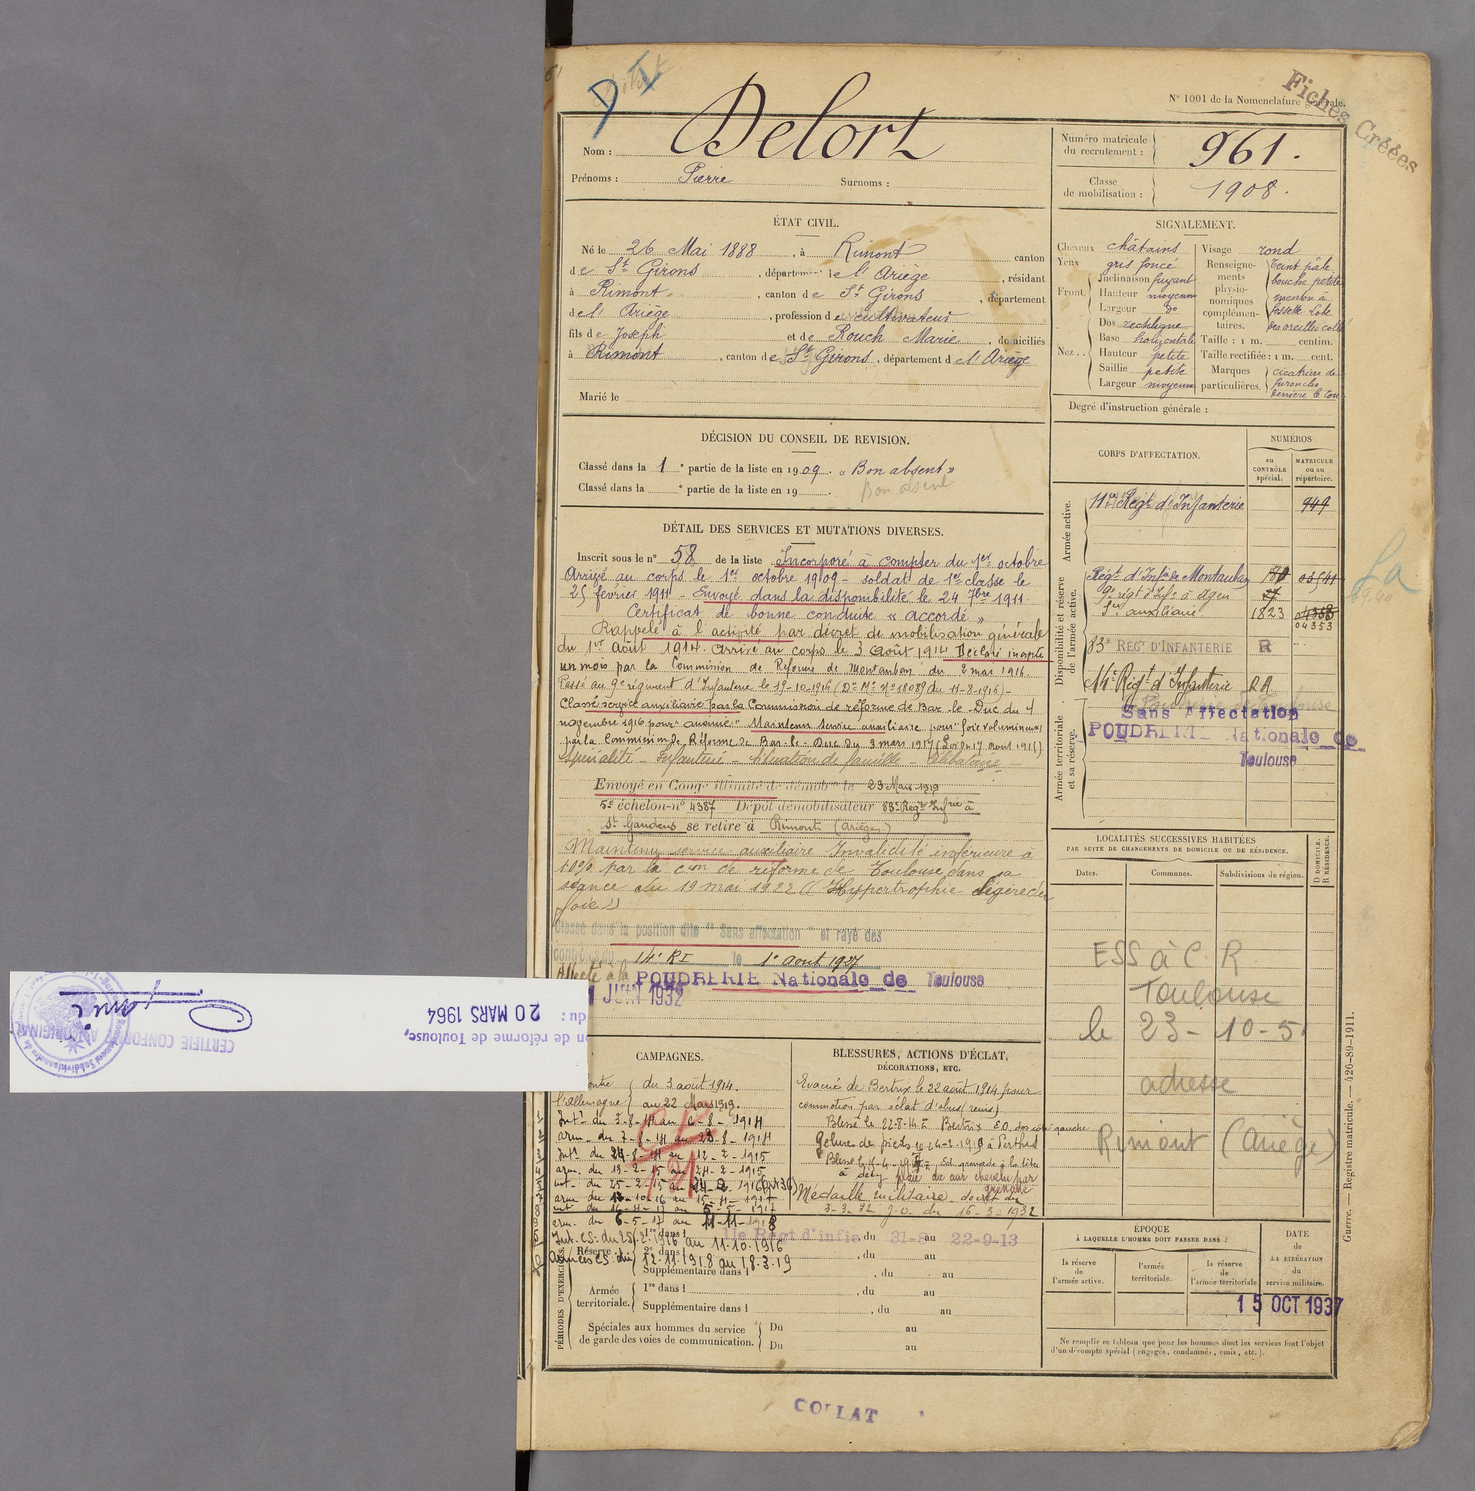 N° 1001 de la Nomenclature générale.
Fiches Créées
Nom : Delort
Prénoms : Pierre Surnoms :
Numéro matricule du recrutement : 961.
Classe de mobilisation : 1908.
ÉTAT CIVIL.
Né le 26 Mai 1888, à Rimont canton
de St Girons, département de l'Ariège, résidant
à Rimont, canton de St Girons, département
de l'Ariège, profession de cultivateur
fils de Joseph et de Rouch Marie, domiciliés
à Rimont, canton de St Girons, département de l'Ariège
Marié le
SIGNALEMENT.
Cheveux châtains
Yeux gris foncé
Front Inclinaison fuyant
Hauteur moyenne
Largeur do
Nez Dos rectiligne
Base horizontale
Hauteur petite
Saillie petite
Largeur moyenne
Visage rond
Renseignements physionomiques complémentaires. Teint pâle bouche petite menton à fossette Lobe des oreilles collé
Taille : 1 m. centim.
Taille rectifiée : 1 m. cent.
Marques particulières. cicatrices de furoncles derrière le cou
Degré d'instruction générale :
DÉCISION DU CONSEIL DE REVISION.
Classé dans la 1e partie de la liste en 1909. « Bon absent »
Classé dans la e partie de la liste en 19 . Bon absent
DÉTAIL DES SERVICES ET MUTATIONS DIVERSES.
Inscrit sous le n° 58 de la liste Incorporé à compter du 1er octobre
Arrivé au corps le 1er octobre 1909 - soldat de 1re classe le
25 février 1911 - Envoyé dans la disponibilité le 24 7bre 1911
Certificat de bonne conduite « accordé »
Rappelé à l'activité par décret de mobilisation générale
du 1er Août 1914. Arrivé au corps le 3 Août 1914 Déclaré inapte
un mois par la Commission de Réforme de Montauban du 2 mai 1916.
Passé au 9e régiment d'Infanterie le 19-10-1916 (Don Mle No 18089 du 11-8-1916)-
Classé service auxiliaire par la Commission de réforme de Bar-le-Duc du 4
novembre 1916 pour "anémie" Maintenu service auxiliaire pour "foie volumineux"
par la Commission de Réforme de Bar-le-Duc du 3 mars 1917 (Loi du 17 aout 1915)
Spécialité - Infanterie - Situation de famille - Célibataire -
Envoyé en Congé illimité de démobon le 23 Mars 1919
5e échelon - n° 4387 Dépôt démobilisateur 83e Régt Infrie à
St Gaudens se retire à Rimont (Ariège)
Maintenu service auxiliaire Invalidité inférieure à
10% par la Cion de réforme de Toulouse dans sa
séance du 19 mai 1922 « Hypertrophie légère du
foie »
Classé dans la position dite "Sans affectation" et rayé des
contrôles 14e RI le 1er aout 1927
Affecté à la POUDRERIE Nationale de Toulouse
1 JUIN 1932
on de réforme de Toulouse,
du : 20 MARS 1964
CERTIFIÉ CONFORME
A L'ORIGINAL
CORPS D'AFFECTATION.
NUMÉROS
au CONTRÔLE spécial.
MATRICULE ou au répertoire.
Armée active.
11e Régt d'Infanterie 949
Disponibilité et réserve de l'armée active.
Régt d'Infie de Montauban 03541
9e régt d'Infie à Agen
Ser auxiliaire 1823 04358
04353
83e REGt D'INFANTERIE R
14e Régt d'Infanterie RA
Armée territoriale et sa réserve.
Sans Affectation
POUDRERIE Nationale de
Toulouse
LOCALITÉS SUCCESSIVES HABITÉES
PAR SUITE DE CHANGEMENTS DE DOMICILE OU DE RÉSIDENCE.
Dates. Communes. Subdivisions de région. D DOMICILE. R RÉSIDENCE.
ESS à C.R
Toulouse
le 23-10-51
adresse
Rimont (Ariège)
CAMPAGNES.
contre du 3 août 1914.
l'Allemagne au 22 Mars 1919.
Intr du 3-8-14 au 6-8-1914
arm. du 7-8-14 au 23-8-1914
Intr du 24-8-14 au 12-2-1915
arm. du 13-2-15 au 24-2-1915
arm. du 6-5-17 au 11-11-1918
Int. CS: du au 11.10.1916
Armées CS. du 12.11.1918 au 18.3.19
BLESSURES, ACTIONS D'ÉCLAT,
DÉCORATIONS, ETC.
Evacué de Bertrix le 22 août 1914 pour
commotion par éclat d'obus
Blessé le 22-8-14 à Bertrix E.O. gauche
Gelure de pieds
Médaille militaire décret du
3-3-32 J.O. du 16-3-1932
PÉRIODES D'EXERCICES
Réserve. 1re dans l 11e Régt d'infie, du 31-8 au 22-9-13
2e dans l , du au
Supplémentaire dans l , du au
Armée territoriale. 1re dans l , du au
Supplémentaire dans l , du au
Spéciales aux hommes du service de garde des voies de communication. Du au
Du au
ÉPOQUE
À LAQUELLE L'HOMME DOIT PASSER DANS :
la réserve de l'armée active.
l'armée territoriale.
la réserve de l'armée territoriale
DATE de LA LIBÉRATION du service militaire.
15 OCT 1937
Ne remplir ce tableau que pour les hommes dont les services font l'objet
d'un décompte spécial (engagés, condamnés, omis, etc.).
Guerre. — Registre matricule. — 426-89-1911.
COLLAT